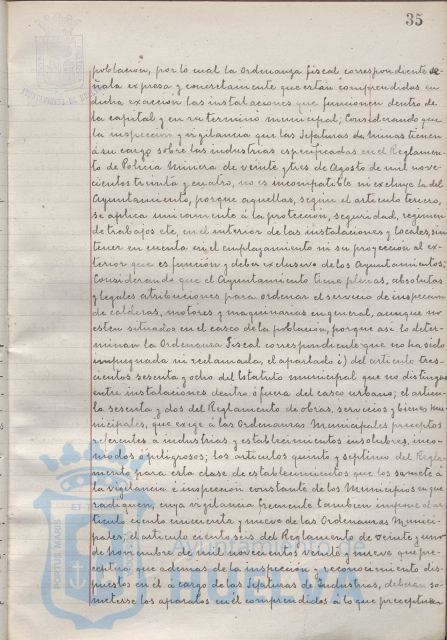 35
población, por lo cual la Ordenanza fiscal correspondiente se-
ñala expresa y concretamente que están comprendidos en
dicha exacción las instalaciones que funcionen dentro de
la capital y en su término municipal; Considerando que
la inspección y vigilancia que las Jefaturas de Minas tienen
á su cargo sobre las industrias especificadas en el Reglamen-
to de Policía Minera de veinte y tres de Agosto de mil nove-
cientos treinta y cuatro, no es incompatible ni excluye la del
Ayuntamiento, porque aquellas, según el artículo tercero,
se aplica unicamente á la protección, seguridad, regimen
de trabajos etc, en el interior de las instalaciones y locales, sin
tener en cuenta en el emplazamiento ni su proyección al ex-
terior que es función y deber exclusivo de los Ayuntamientos;
Considerando que el Ayuntamiento tiene plenas, absolutas
y legales atribuciones para ordenar el servicio de inspección
de calderas, motores y maquinarias en general, aunque no
esten situados en el casco de la población, porque asi lo deter-
minan la Ordenanza Fiscal correspondiente que no ha sido
impugnada ni reclamada, el apartado i) del artículo tres-
cientos sesenta y ocho del Estatuto municipal que no distingue
entre instalaciones dentro ó fuera del casco urbano; el articu-
lo sesenta y dos del Reglamento de obras, servicios y bienes mu-
nicipales, que exige á las Ordenanzas Municipales preceptos
referentes á industrias y establecimientos insalubres, incó-
modos ó peligrosos; los artículos quinto y septimo del Regla-
mento para esta clase de establecimientos que los somete á
la vigilancia é inspección constante de los Municipios en que
radiquen, cuya vigilancia frecuente tambien impone el ar-
tículo ciento cincuenta y nueve de las Ordenanzas Munici-
pales; el artículo ciento dos del Reglamento de veinte y uno
de noviembre de mil novecientos veinte y nueve que pre-
ceptua que además de la inspección y reconocimiento dis-
puestos en el á cargo de las Jefaturas de Industrias, deberan so-
meterse los aparatos en él comprendidos á lo que preceptúen
PORTUS MARIS
ET
Ayuntamiento de
HUELVA